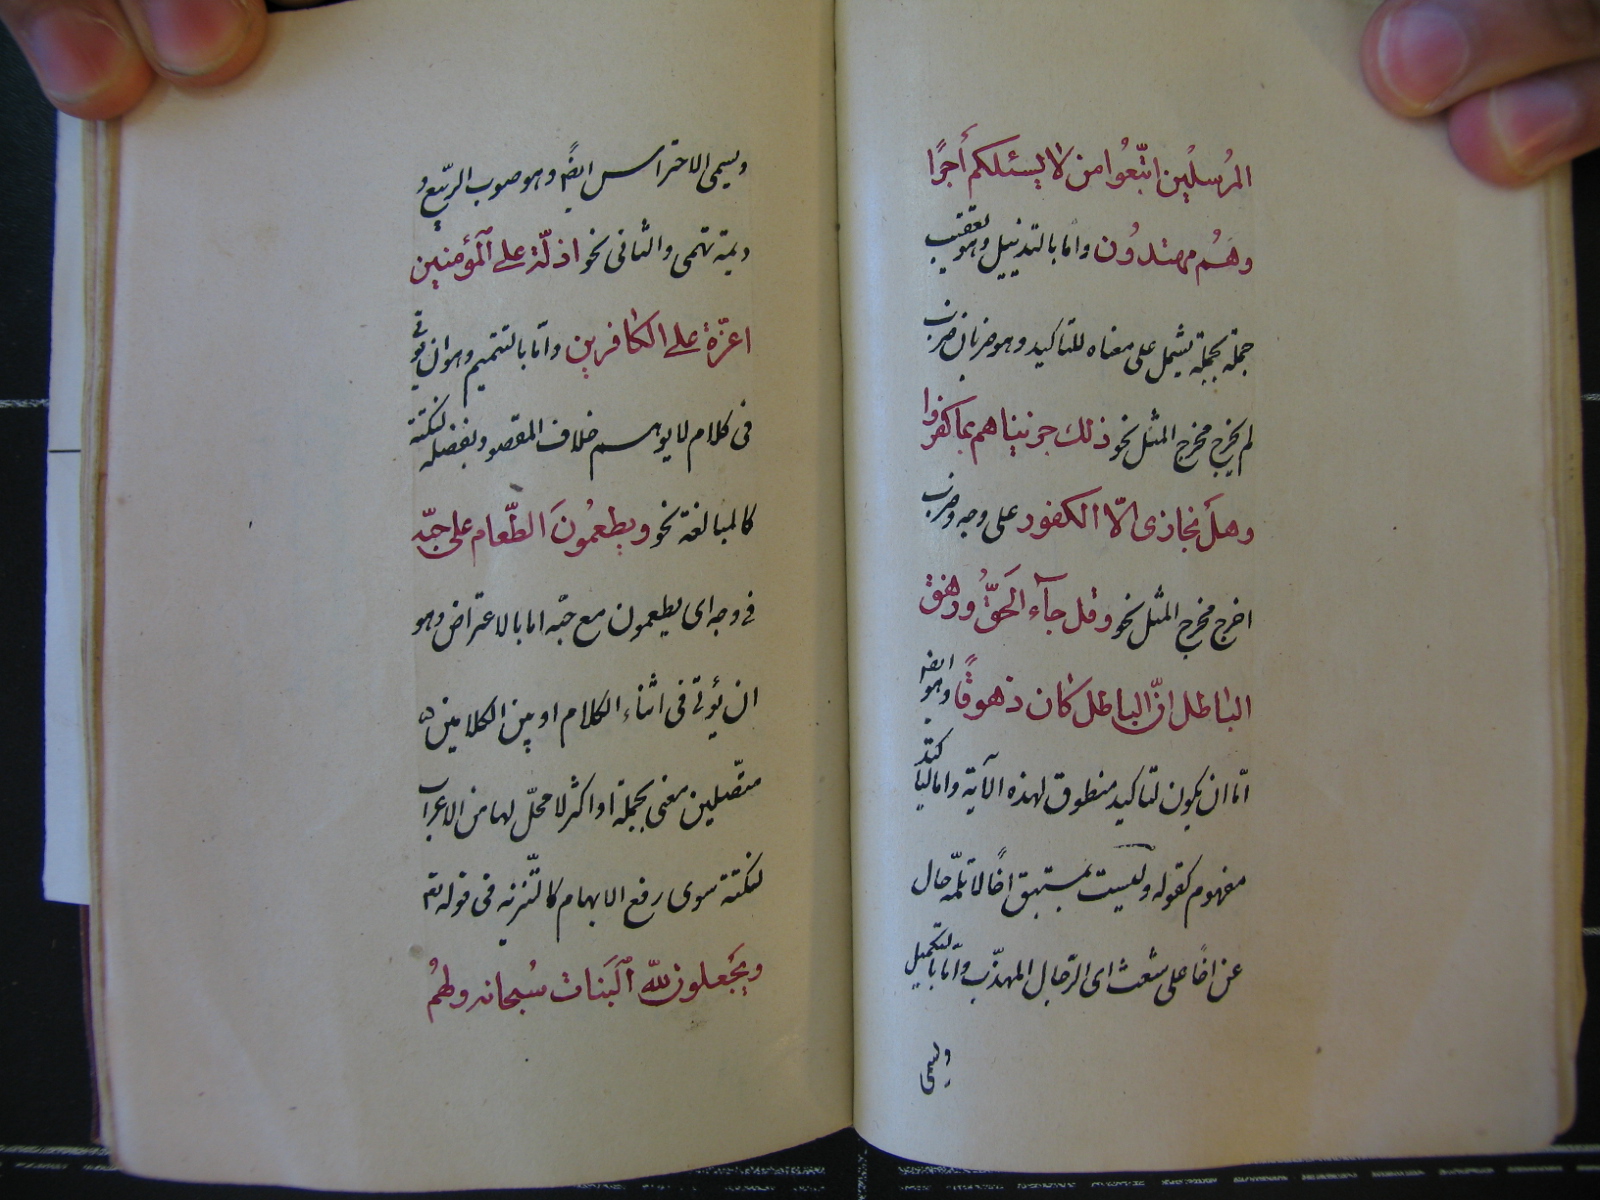 المُرسلين اتّبعُوا من لا يسئلكم أجرًا
وهُم مهتدُون واما بالتذييل وهو تعقيب
جملة بجملة يشمل على معناه للتاكيد وهو ضربان ضرب
لم يخرج مخرج المثل نحو ذلك جزيناهم بما كفروا
وهل نجازى الّا الكفور على وجه وضرب
اخرج مخرج المثل نحو وقل جآء الحَقُّ وزهق
الباطل انّ الباطل كان زهوقًا وهو ايضا
امّا ان يكون لتاكيد منطوق لهذه الآية واما لتاكيد
مفهوم كقوله ولست بمستبق اخًا لا تلمّه حال
عن اخا على شعث اى الرّجال المهذّب وامّا بالتكميل
ويسمى
ويسمى الاحتراس ايضًا وهو صوب الرّبيع و
ديمة تهمى والثانى نحو اذلّة على المؤمنين
اعزّة على الكافرين وامّا بالتتميم وهو ان يؤتى
فى كلام لا يوهم خلاف المقصود بفضلة لنكتة
كالمبالغة نحو ويطعمُونَ الطّعام على حبّه
فى وجه اى يطعمون مع حبّه اما بالاعتراض وهو
ان يؤتى فى اثناء الكلام او بين الكلامين
متّصلين معنى بجملة او اكثر لا محلّ لها من الاعراب
لنكتة سوى رفع الابهام كالتّنزيه فى قوله تعه
ويجعلون للّه البَنات سُبحانه ولهُم